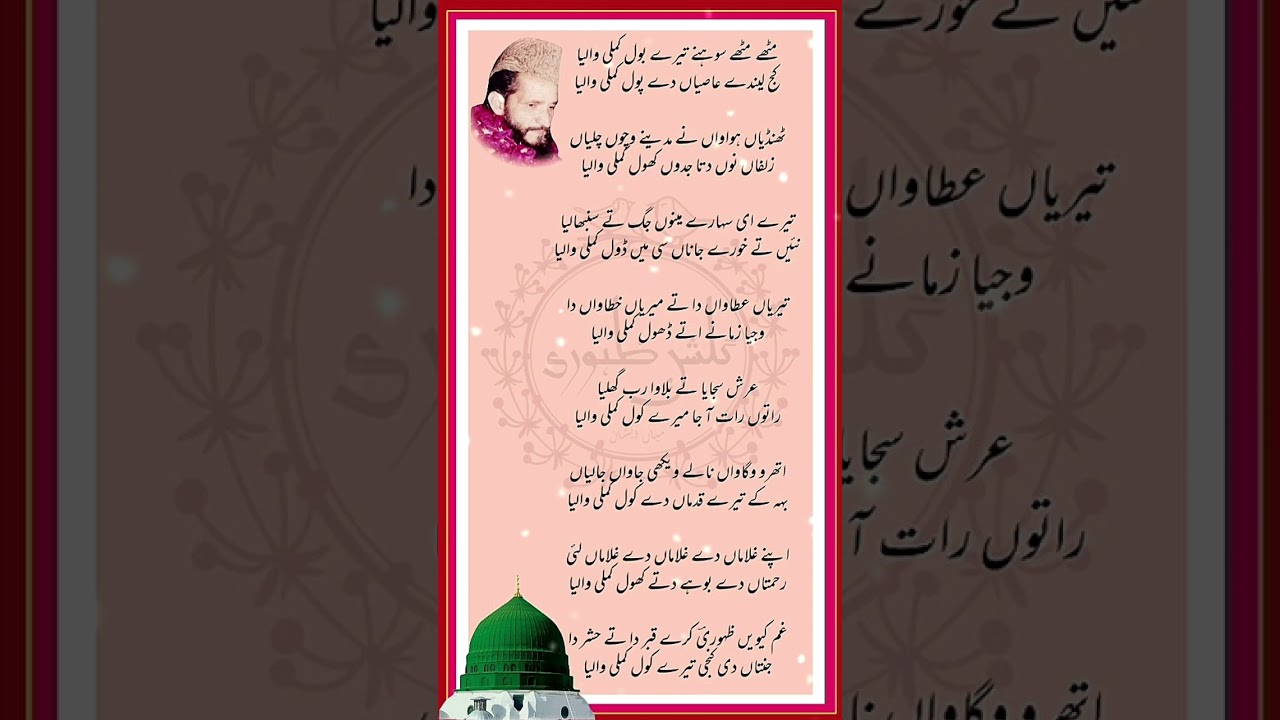 مٹھے مٹھے سوہنے تیرے بول کملی والیا
کج لیندے عاصیاں دے پول کملی والیا
ٹھنڈیاں ہواواں نے مدینے وچوں چلیاں
زلفاں نوں دتا جدوں کھول کملی والیا
تیرے ای سہارے مینوں جگ تے سنبھالیا
نئیں تے خورے جاناں سی میں ڈول کملی والیا
تیریاں عطاواں دا تے میریاں خطاواں دا
وجیا زمانے اتے ڈھول کملی والیا
عرش سجایا تے بلاوا رب گھلیا
راتوں رات آ جا میرے کول کملی والیا
اتھرو وگاواں نالے ویکھی جاواں جالیاں
بہہ کے تیرے قدماں دے کول کملی والیا
اپنے غلاماں دے غلاماں دے غلاماں لئی
رحمتاں دے بوہے دتے کھول کملی والیا
غم کیویں ظہوریؔ کرے قبر دا تے حشر دا
جنتاں دی کنجی تیرے کول کملی والیا
گلشن ظہوری
نئیں تے خورے
تیریاں عطاواں دا
وجیا زمانے
عرش سجایا
راتوں رات آ
اتھرو وگاواں نا